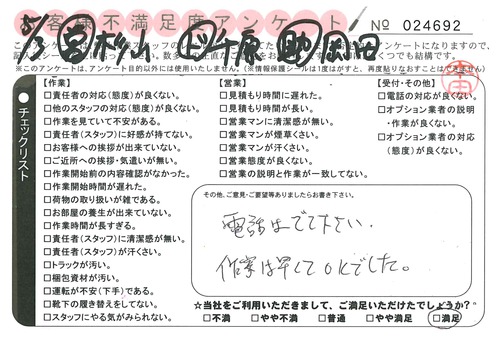 お客様不満足度アンケート
№ 024692
5/3
※このアンケートは、アンケート目的以外には使用いたしません。(※情報保護シールは1度はがすと、再度貼りなおすことはできません)
チェックリスト
【作業】
□責任者の対応(態度)が良くない。
□他のスタッフの対応(態度)が良くない。
□作業を見ていて不安がある。
□責任者(スタッフ)に好感が持てない。
□お客様への挨拶が出来ていない。
□ご近所への挨拶・気遣いが無い。
□作業開始前の内容確認がなかった。
□作業開始時間が遅れた。
□荷物の取り扱いが雑である。
□お部屋の養生が出来ていない。
□作業時間が長すぎる。
□責任者(スタッフ)に清潔感が無い。
□責任者(スタッフ)が汗くさい。
□トラックが汚い。
□梱包資材が汚い。
□運転が不安(下手)である。
□靴下の履き替えをしてない。
□スタッフにやる気がみられない。
【営業】
□見積もり時間に遅れた。
□見積もり時間が長い。
□営業マンに清潔感が無い。
□営業マンが煙草くさい。
□営業マンが汗くさい。
□営業態度が良くない。
□営業の説明と作業が一致してない。
【受付・その他】
□電話の対応が良くない。
□オプション業者の説明
・作業が良くない。
□オプション業者の対応
(態度)が良くない。
その他、ご意見・ご要望等ありましたらお書き下さい。
電話はでて下さい.
作業は早くてOKでした。
☆当社をご利用いただきまして、ご満足いただけたでしょうか?
□不満 □やや不満 □普通 □やや満足 □満足